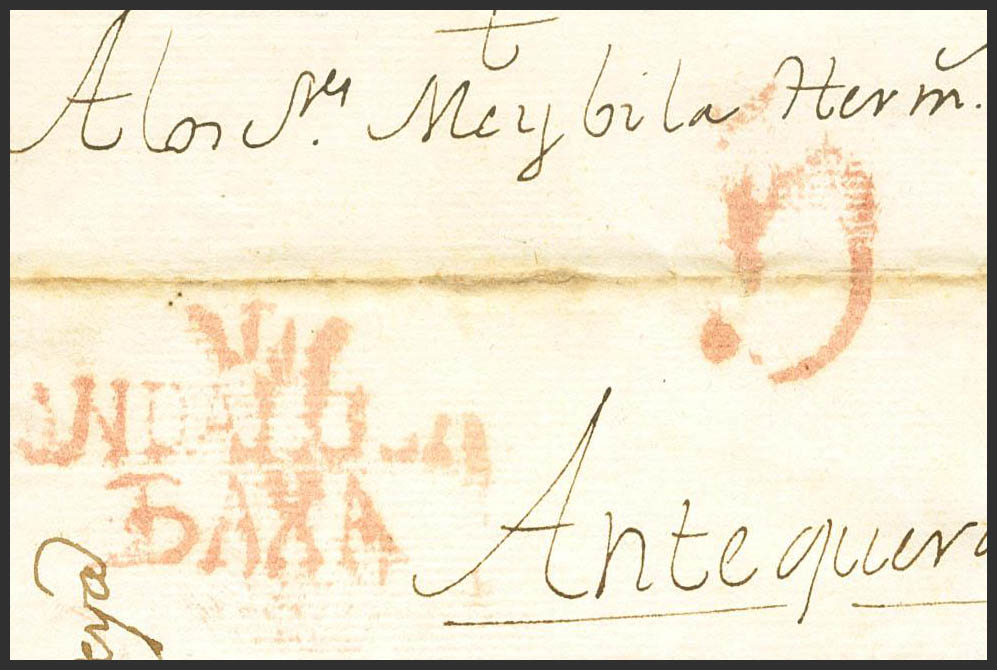 A los S.res Meybila Herm.
9
ANDALU
BAXA
Antequera